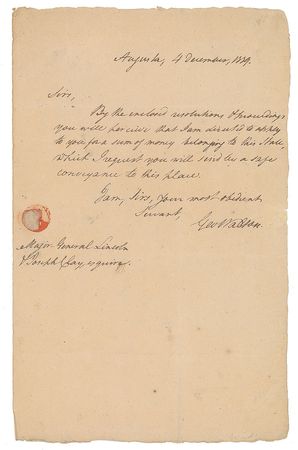 Augusta, 4 December, 1779.
Sirs,
By the enclosed resolutions & proceedings
you will perceive that I am directed to apply
to you for a sum of money belonging to this State,
which I request you will send by a safe
conveyance to this place.
I am, Sirs, your most obedient
Servant,
Geo Walton.
Major General Lincoln
& Joseph Clay, esquire.